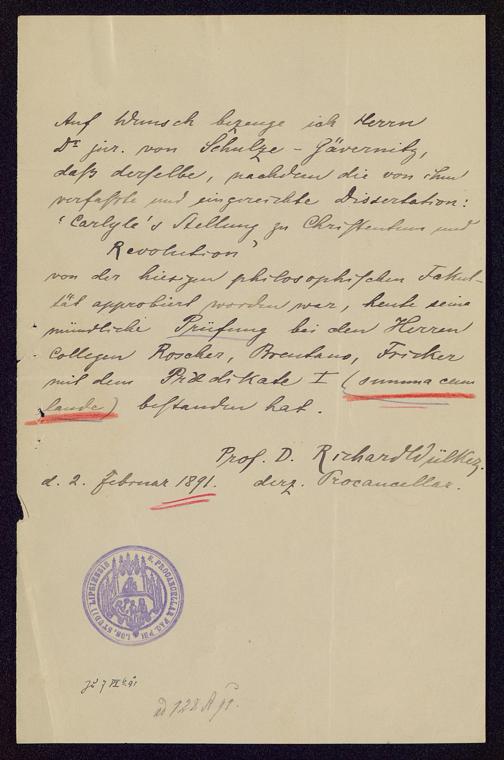 Auf Wunsch bezeuge ich Herrn
Dr jur. von Schulze-Gävernitz,
daß derselbe, nachdem die von ihm
verfaßte und eingereichte Dissertation:
'Carlyle's Stellung zu Christentum und
Revolution'
von der hiesigen philosophischen Fakul-
tät approbiert worden war, heute seine
mündliche Prüfung bei den Herren
Collegen Roscher, Brentano, Fricker
mit dem Prädikate I (summa cum
laude) bestanden hat.
Prof. D. Richard Wülker,
d. 2. Februar 1891. derz. Procancellar.
S. PROCANCELLAR. FAC. PHI LOS. STUDII LIPSIENSIS
ad 122 A 91.